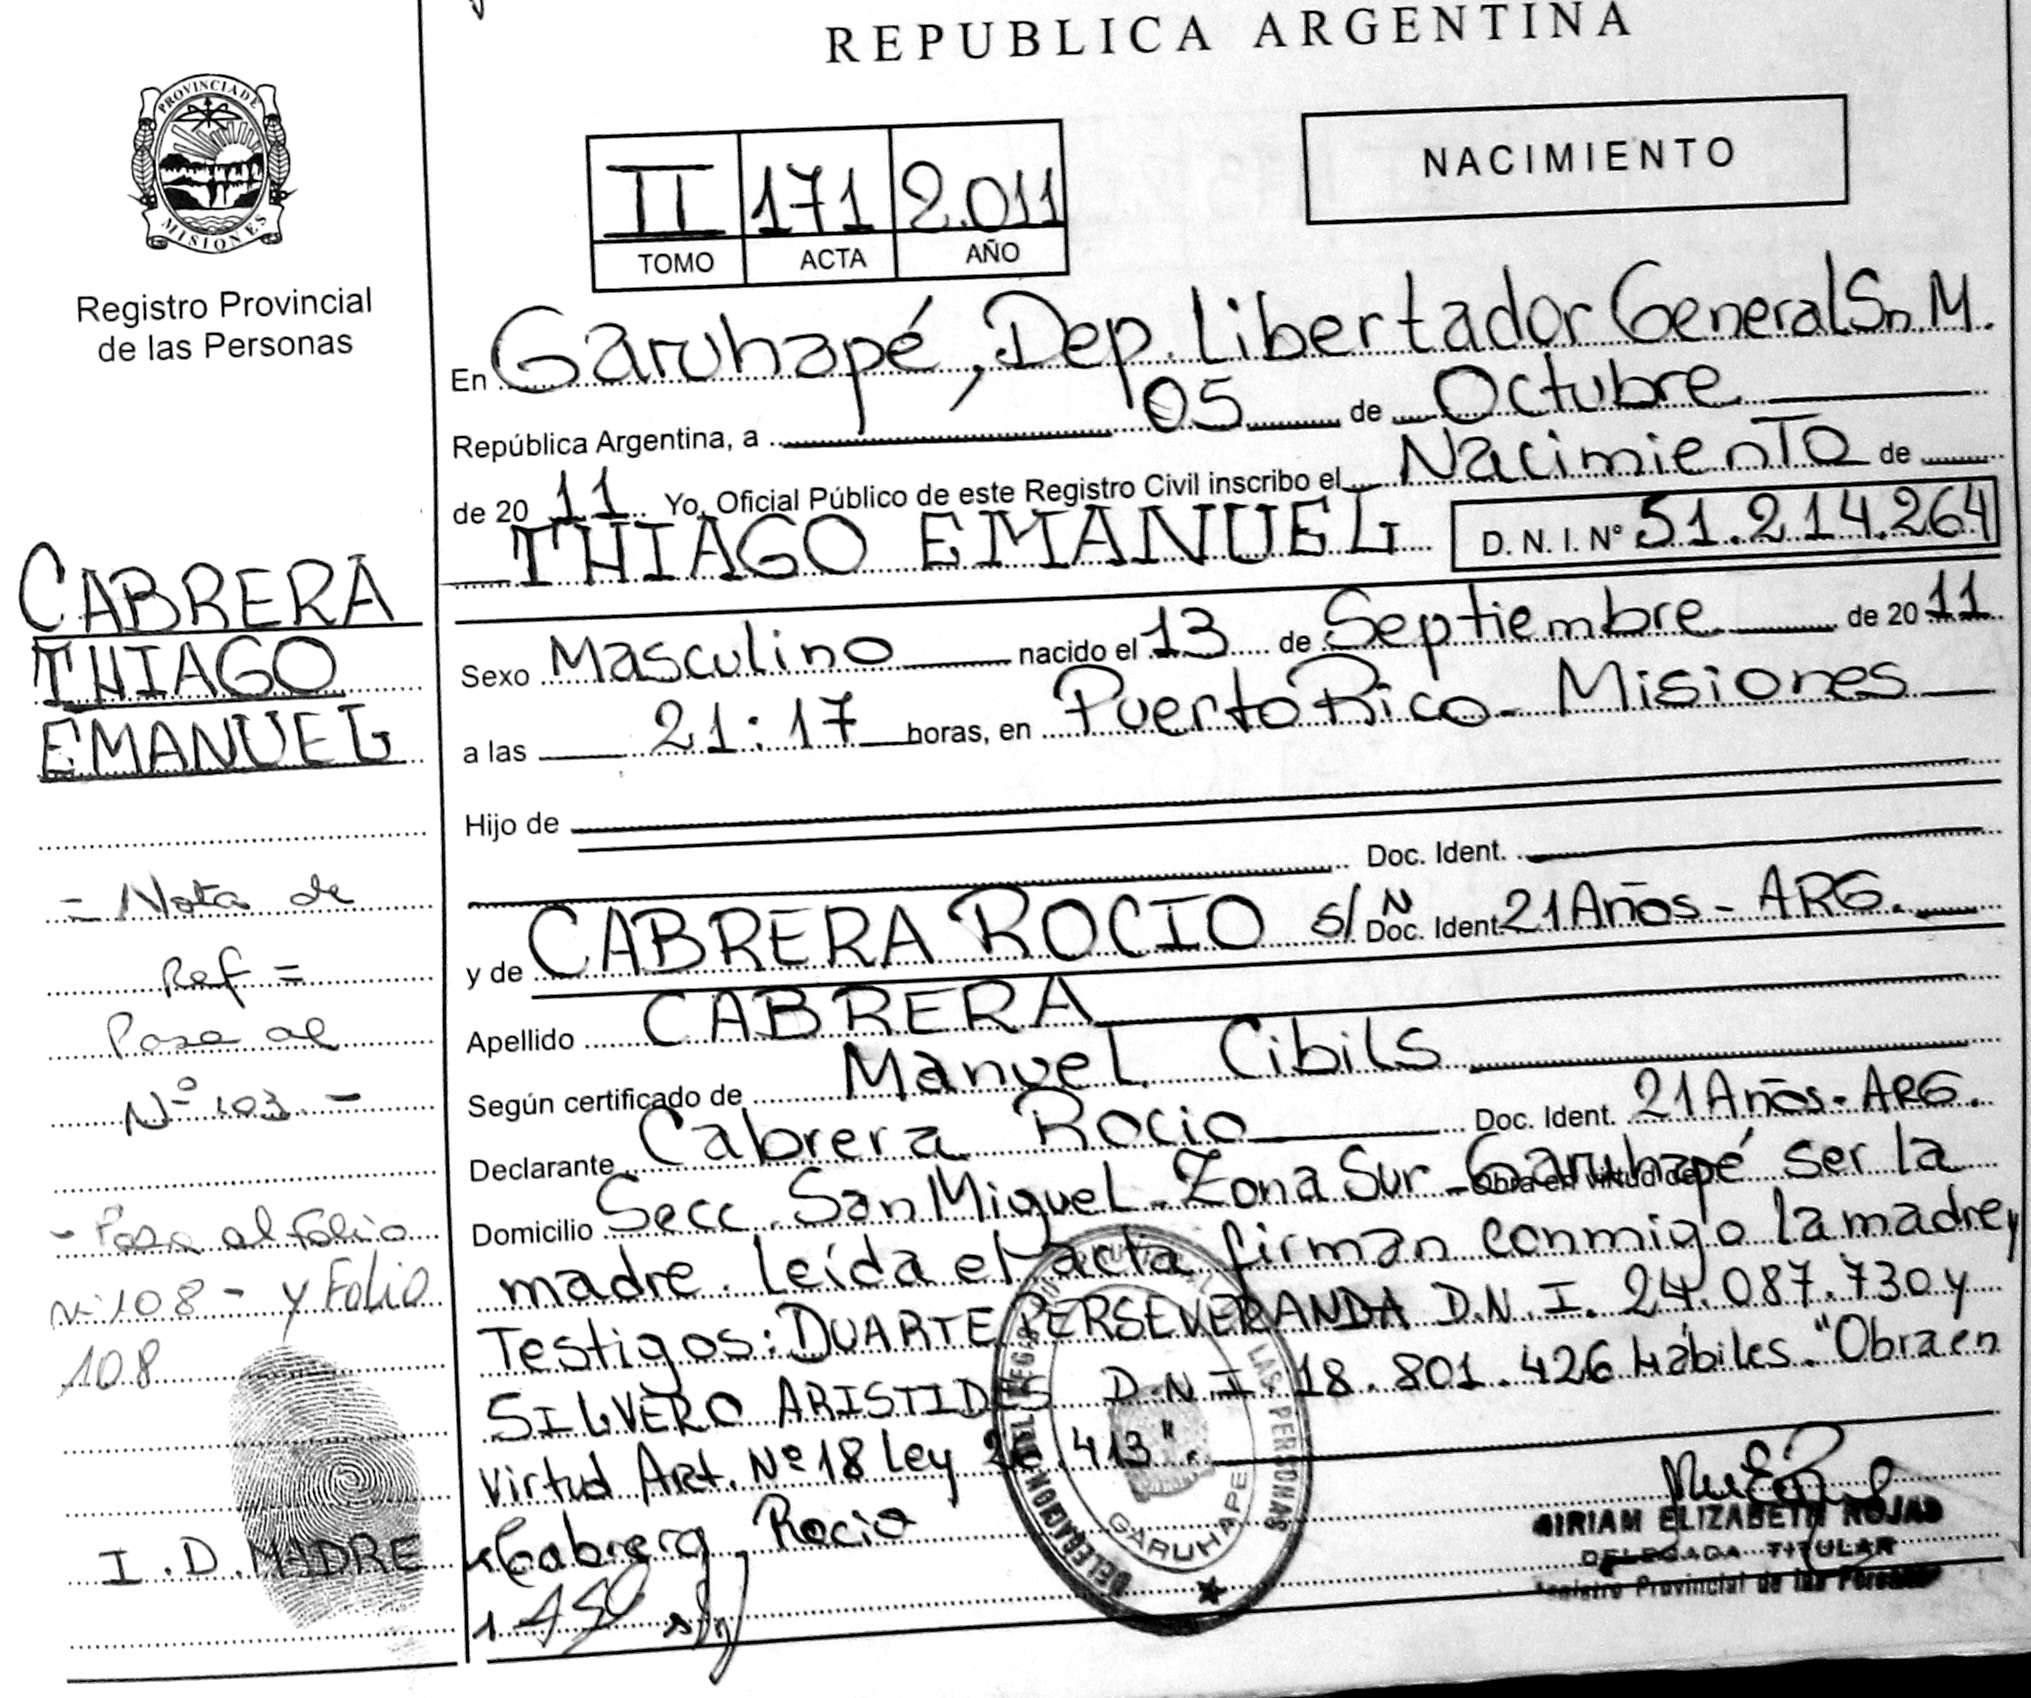 REPUBLICA ARGENTINA
PROVINCIA DE
MISIONES
Registro Provincial
de las Personas
II 171 2.011
TOMO ACTA AÑO
NACIMIENTO
En Garuhapé, Dep. Libertador General Sn. M.
República Argentina, a 05 de Octubre
de 20 11 Yo, Oficial Público de este Registro Civil inscribo el Nacimiento de
THIAGO EMANUEL D. N. I. Nº 51.214.264
CABRERA
THIAGO
EMANUEL
Sexo Masculino nacido el 13 de Septiembre de 20 11
a las 21:17 horas, en Puerto Rico - Misiones
Hijo de
Doc. Ident.
y de CABRERA ROCIO s/N Doc. Ident. 21 Años - ARG.
Apellido CABRERA
Según certificado de Manuel Cibils
Declarante Cabrera Rocio Doc. Ident. 21 Años - ARG.
Domicilio Secc. San Miguel - Zona Sur - Garuhapé ser la
madre. leída el acta firman conmigo la madre y
Testigos: DUARTE PERSEVERANDA D.N.I. 24.087.730 y
SILVERO ARISTIDES D.N.I. 18.801.426 Hábiles. "Obra en
Virtud Art. Nº 18 Ley 26.413".
Cabrera Rocio
- Nota de
Ref =
Pasa al
Nº 103 -
- Pasa al folio
Nº 108 - y Folio
108
I. D. MADRE
DELEGACION
LAS PERSONAS
GARUHAPE
MIRIAM ELIZABETH ROJAS
DELEGADA TITULAR
Registro Provincial de las Personas